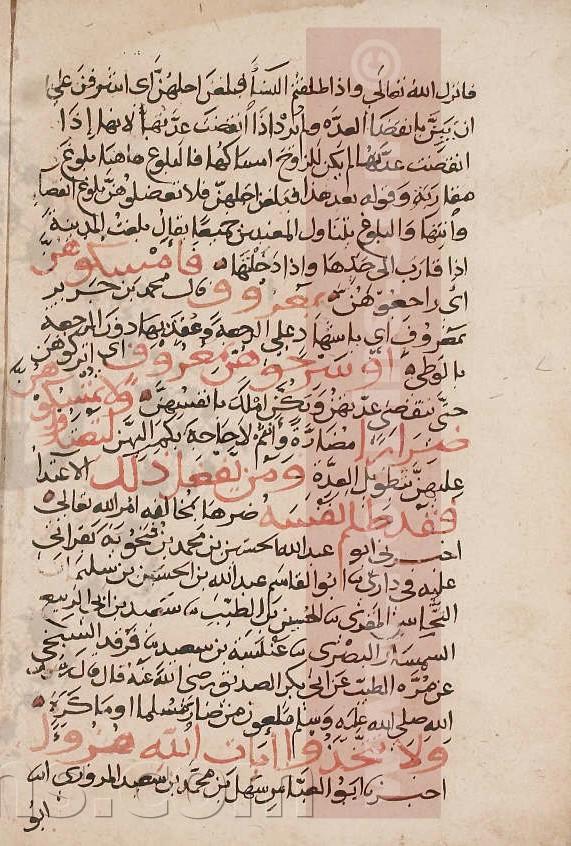 فانزل الله تعالى واذا طلقتم النسا فبلغن اجلهن اى اشرفن على
ان يبن بانقضا العده ولم يرد اذا انقضت عدتها لانها اذا
انقضت عدتها لم يكن للزوج امساكها فالبلوغ هاهنا بلوغ
مقاربة وقوله بعد هذا فبلغن اجلهن فلا تعضلوهن بلوغ انقضا
وانتها والبلوغ يتناول المعنيين جميعا يقال بلغت المدينة
اذا قاربت الى حدها واذا دخلتها فامسكوهن
اى راجعوهن بمعروف قال محمد بن جرير
بمعروف اى باشهاد على الرجعه وعقد بها دون الرجعه
بالوطى او سرحوهن بمعروف اى اتركوهن
حتى تنقضى عدتهن ويكن املك بانفسهن ولا تمسكوهن
ضرارا مضارة وانتم لا حاجة بكم اليهن لتعتدوا
عليهن بتطويل العدة ومن يفعل ذلك الاعتدا
فقد ظلم نفسه ضرها بمخالفه امر الله تعالى
اخبرنى ابو عبد الله الحسين بن محمد بن فنجويه بقراتى
عليه فى دارى ابو القاسم عبد الله بن الحسين بن سليم
المقرى الحسين بن الطيب سعيد بن ابى الربيع
السمان البصرى عنبسه بن سعيد فرقد السبخى
عن مره الطيب عن ابى بكر الصديق رضى الله عنه قال قال
الله صلى الله عليه وسلم ملعون من ضار مسلما او ماكره
ولا تتخذوا ايات الله هزوا
اخبرنا ابو العباس سهل بن محمد بن سعيد المروزى
ابو